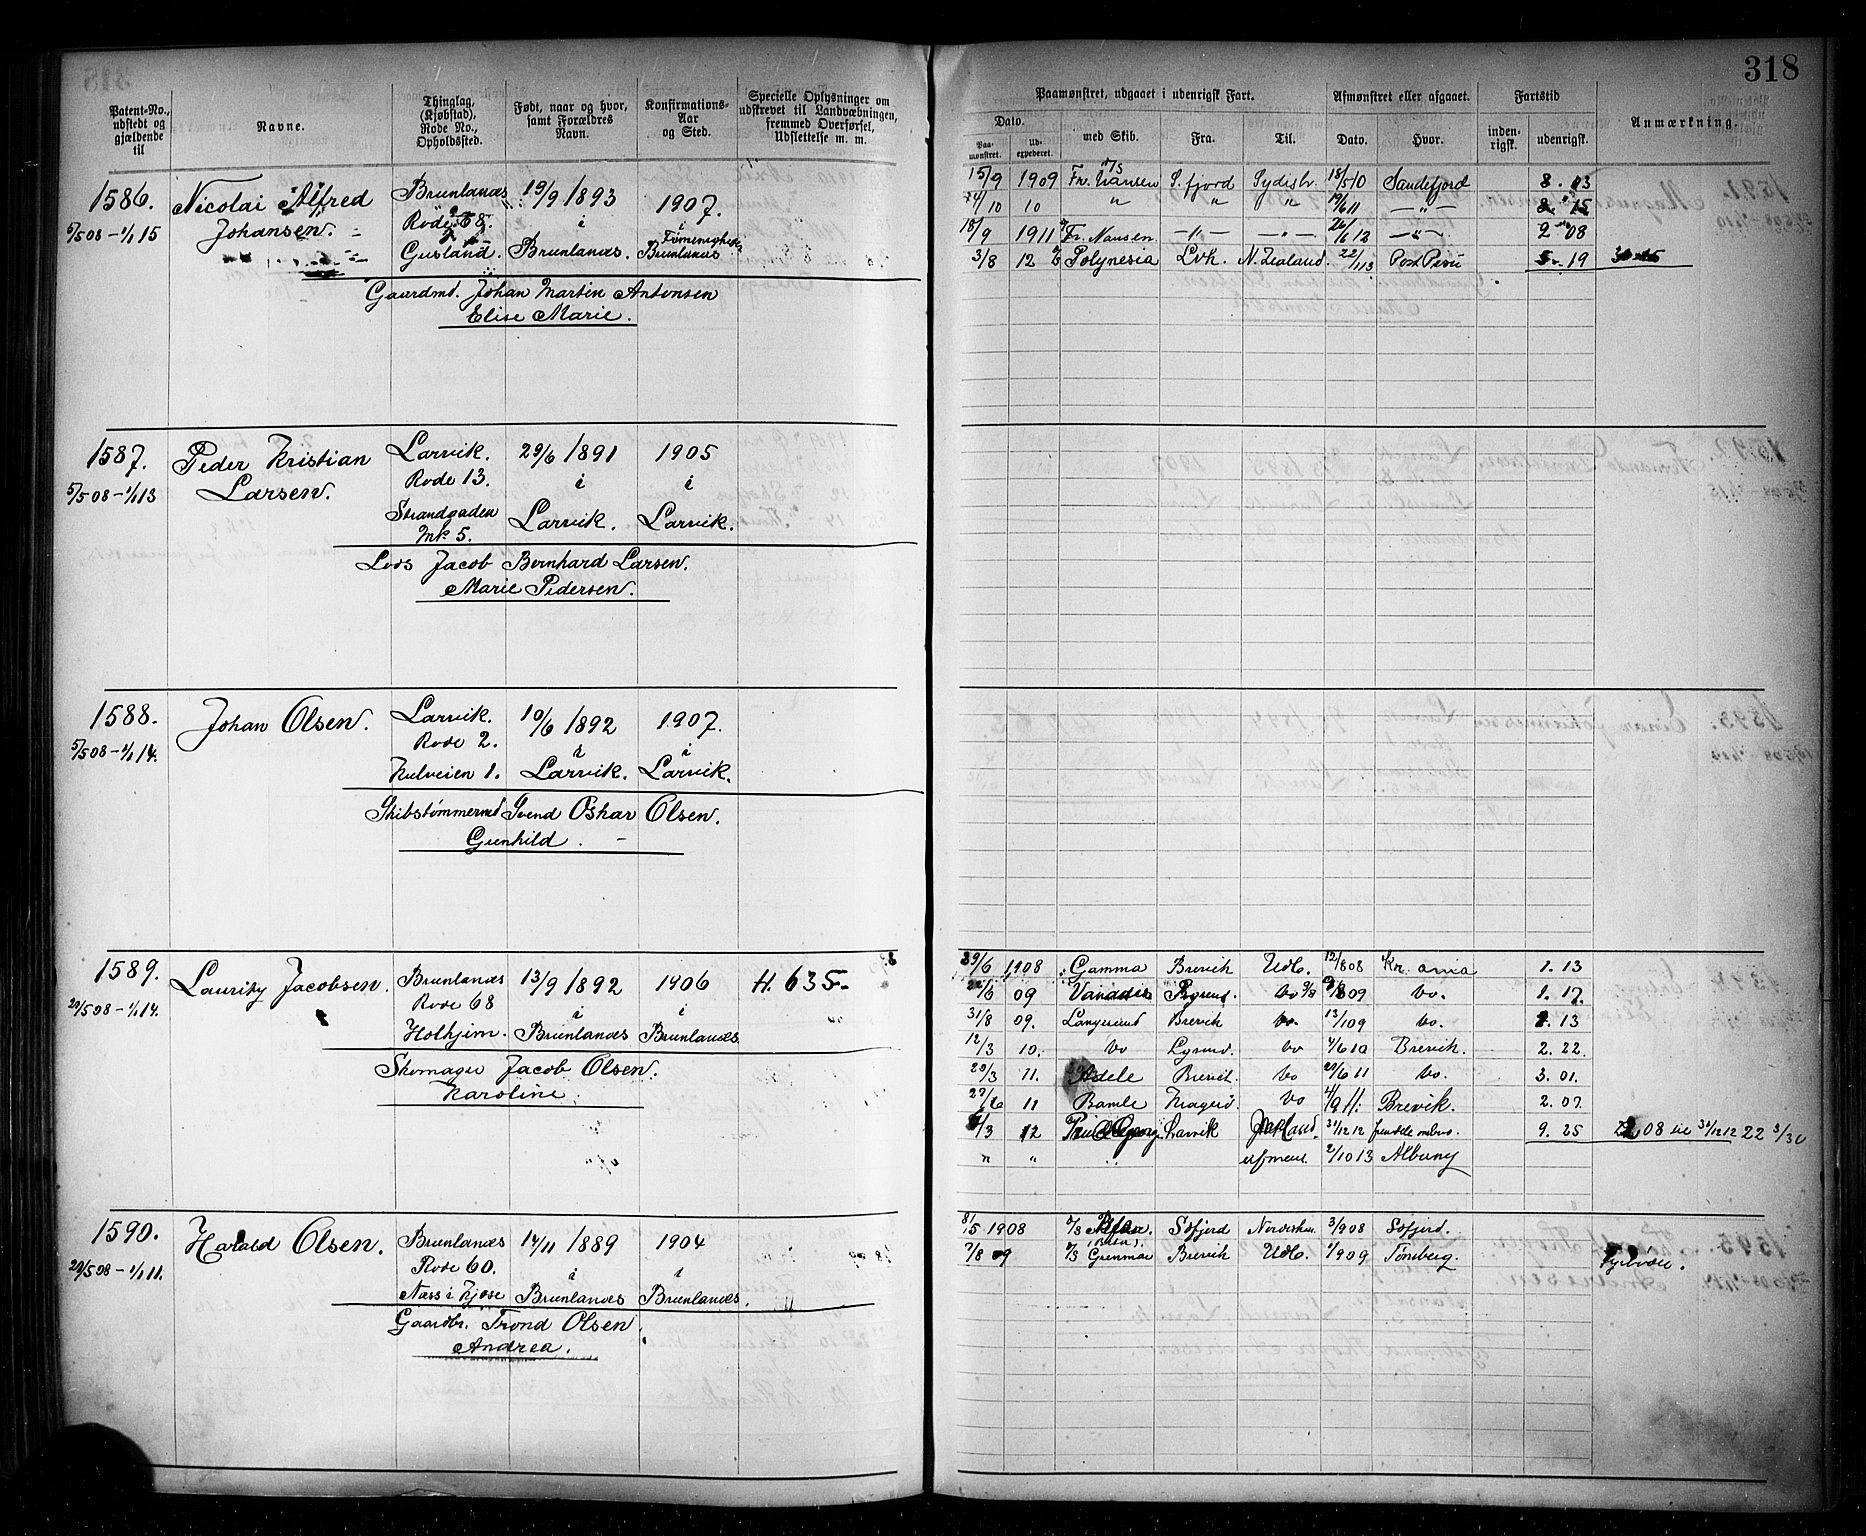 318
Patent-No., udstedt og gjældende til
Navne.
Thinglag, (Kjøbstad), Rode No., Opholdssted.
Født, naar og hvor, samt Forældres Navn.
Konfirmations- Aar og Sted.
Specielle Oplysninger om udskrevet til Landvæbningen, fremmed Overførsel, Udslettelse m. m.
Paamønstret, udgaaet i udenrigsk Fart.
Dato.
Paa-mønstret.
Ud-expederet.
med Skib.
Fra.
Til.
Afmønstret eller afgaaet.
Dato.
Hvor.
Fartstid
inden-rigsk.
udenrigsk.
Anmærkning.
1586.
5/5 08 - 1/1 15
Nicolai Alfred
Johansen.
Brunlanæs
Rode 68.
Gusland.
19/9 1893
i
Brunlanæs.
1907.
i
Brunlanæs
Gaardmd. Johan Martin Antonsen
Elise Marie.
15/9 1909 Fr. Nansen S. fjord Sydish. 18/5 10 Sandefjord 8. 03
10 " " " 19/6 11 — " — 8. 15
18/9 1911 Fr. Nansen — " — — " — 26/6 12 — " — 2 08
3/8 12 Polynesia Lvk. N. Zealand. 22/1 13 Port Pirie 5. 19
1587.
5/5 08 - 1/1 13
Peder Kristian
Larsen.
Larvik.
Rode 13.
Strandgaden
Mk 5.
29/6 1891
i
Larvik.
1905
i
Larvik.
Lods Jacob Bernhard Larsen.
Marie Pedersen.
1588.
5/5 08 - 1/1 14.
Johan Olsen.
Larvik.
Rode 2.
Kulveien 1.
10/6 1892
i
Larvik.
1907.
i
Larvik.
Skibstømmermd Svend Oskar Olsen.
Gunhild.
1589.
29/5 08 - 1/1 14.
Lauritz Jacobsen.
Brunlanæs
Rode 68
Holhjem.
13/9 1892
i
Brunlanæs
1906
i
Brunlanæs.
H. 635-
Skomager Jacob Olsen.
Karoline.
29/6 1908 Gamma Brevik Udl. 12/8 08 Kr. ania 1. 13
22/6 09 Vanadis do 09 do. 1. 17.
31/8 09. Langesund Brevik do. 13/1 09 do. 2. 13
12/3 10. do do 4/6 10 Brevik. 2. 22.
29/3 11. Adele Brevik. do 29/6 11 do. 3. 01.
11 Bamle Kragerø. do 4/9 11. Brevik. 2. 07.
/3 12 Larvik 31/12 12 9. 25 08 31/12 12 22
" " 2/10 13 Albany
1590.
29/5 08 - 1/1 11.
Harald Olsen.
Brunlanæs
Rode 60.
Næss i Kjose
14/11 1889
i
Brunlanæs
1904
i
Brunlanæs.
Gaardbr. Trond Olsen
Andrea.
8/5 1908 Sdfjord Nordishav. 3/9 08 Sdfjord.
7/8 09 Grenmar Brevik Udl. 1/9 09 Tønsberg.